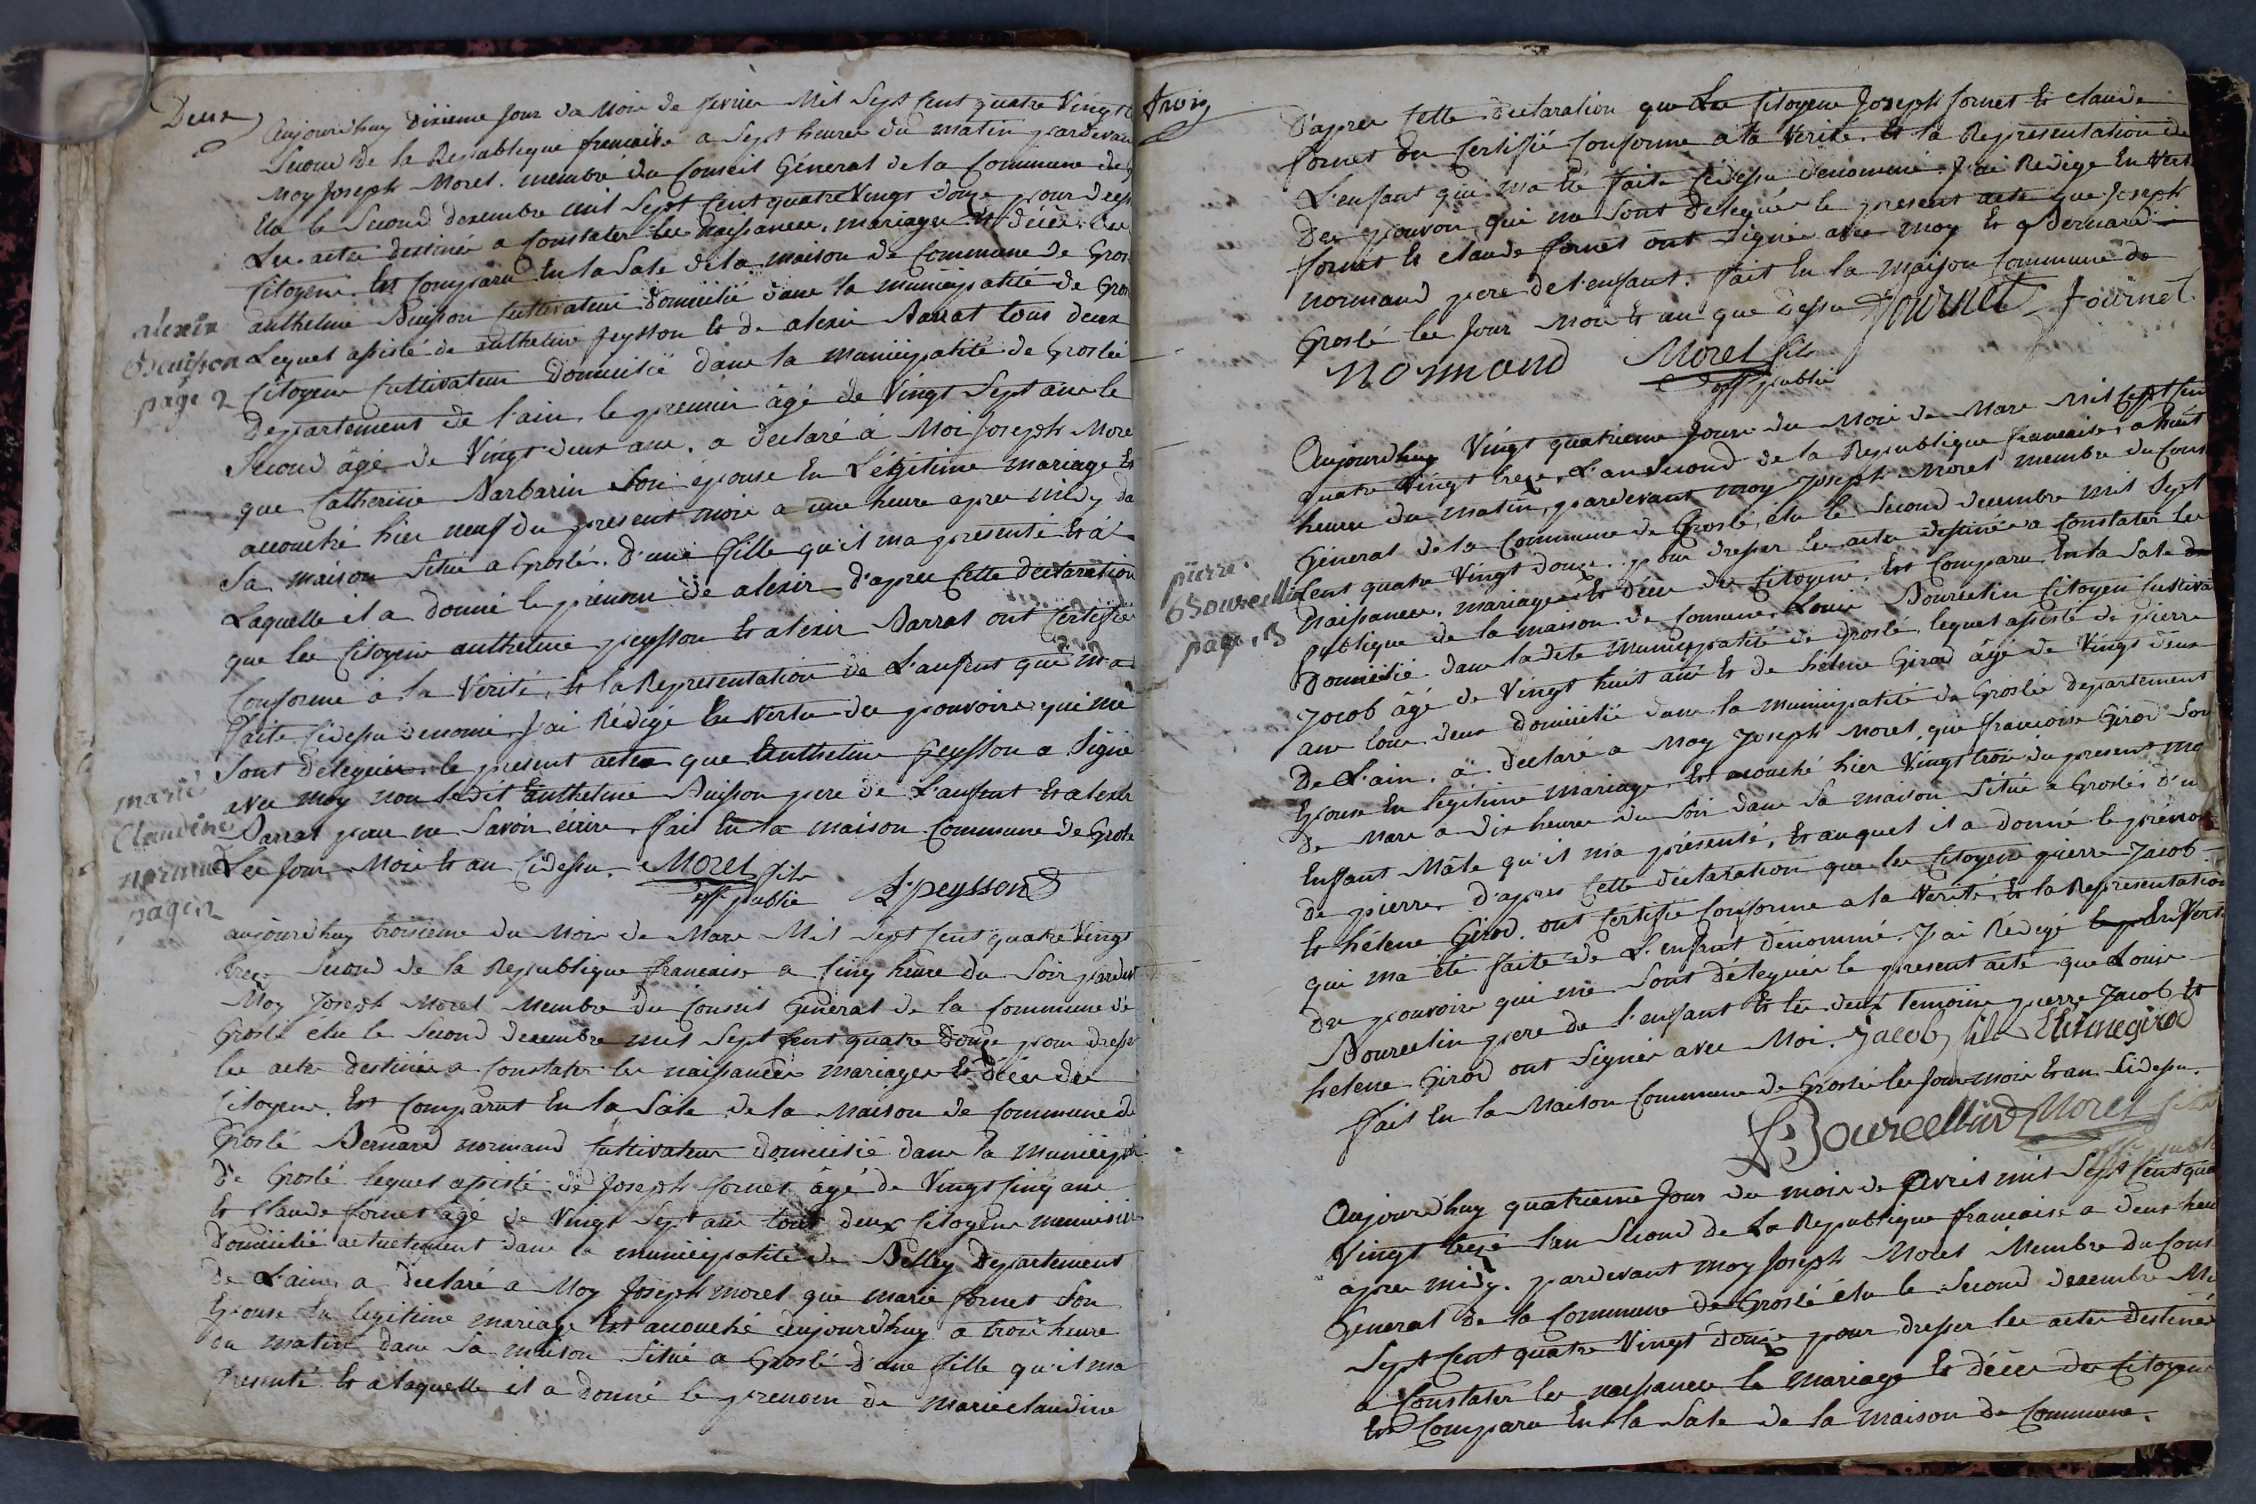 Deux
Aujourdhuy dixieme Jour du Mois de fevrier Mil Sept Cent quatre Vingt
Second de la Republique francaise a Sept heures du matin pardevan
moy Joseph Morel. membre du Conseil Géneral de la Commune de
Elu le Second decembre mil Sept Cent quatre Vingt douze pour
Les actes destinés a Constater les naissances, mariages et deces des
Citoyens. Est Comparu En la Sale de la maison de Commune de Gros
anthelme Buisson Cultivateur domicilié dans la municipalité de Gros
alexix
Buisson
page 2
Lequel assisté de anthelme peysson et de alexix Barrat tous deux
Citoyens Cultivateurs Domicilié dans la municipalité de Groslée
Departement de l'ain, le premier âgé de Vingt Sept ans le
Second âgé de Vingt deux ans. a declaré à Moi Joseph More
que Catherine Barbarin Son épouse En Légitime mariage Est
accouché hier neuf du present mois a une heure apres midy da
Sa maison Situé a Groslé. d'une fille qu'il ma presenté Et a
Laquelle il a donné le prenom de alexix d'apres Cette declaration
que les Citoyens anthelme peysson Et alexix Barrat ont Certifié
Conforme à la Vérité, Et la Representation de L'enfent qui ma
faite Cidessu denomé, J'ai Rédigé En Vertu des pouvoirs qui me
Sont délégués, le present actes que Anthelme Peysson a Signé
avec moy non ledit Anthelme Buisson pere de L'enfent Et alexix
Barrat pour ne Savoir écrire. fait En la maison Commune de Grosle
Les Jour Mois Et an Cidessu. Morel fils
off. public A. peysson
marie
Claudine
normand
page 2
aujourdhuy troisieme du Mois de Mars Mil Sept Cent quatre Vingt
treze Second de la Republique francaise a Cinq heure du Soir pardev
Moy Joseph Morel Membre du Conseil Général de la Commune de
Groslé elu le Second decembre mil Sept Cent quatre douze pour dresser
les actes destinés a Constater les naissances mariages Et déces des
Citoyens. Est Comparut En la Sale de la Maison de Commune de
Groslé Bernard normand Cultivateur domicilié dans la Municipali
de Groslé lequel assisté de Joseph fornet âgé de Vingt Cinq ans
Et Claude fornet âgé de Vingt Sept ans tous deux Citoyens menuisie
Domicilié actuelement dans la municipalité de Belley Departement
de L'ain, a declaré a Moy Joseph morel que marie fornet Son
Epouse En legitime mariage Est accouché aujourdhuy a trois heure
du matin dans Sa maison Situé a Groslé d'une fille qu'il ma
Presenté Et a laquelle il a donné le prenom de marie claudine
trois
D'apres Cette declaration que Les Citoyens Joseph fornet Et claude
fornet on Certifié Conforme a la Verité. Et la Representation de
L'enfant qui ma été faite Cidessu denommé. J'ai Redigé En Vert
Des pouvoir qui me Sont delegués le present acte que Joseph
fornet Et claude fornet ont Signé avec moy Et Bernard
normand pere de l'enfant. fait En la maison Commune de
Groslé les Jour Mois Et an que Dessu Journet Journet
normand Morel fils
off. public
Aujourdhuy Vingt quatrieme Jour du Mois de Mars Mil Sept Cen
quatre Vingt treze, L'an Second de la Republique francaise, a huit
heures du matin, pardevant moy Joseph Morel membre du Cons
Géneral de la Commune de Groslé, elu le Second decembre mil Sept
pierre
Bourcellin
page, 3
Cent quatre Vingt douze, pour dresser les actes destinés a Constater les
Naissances, mariages Et déces des Citoyens. Est Comparu En la Sale
publique de la maison de Comune, Louis Bourcelin Citoyen Cultiva
Domicilié dans ladite Municipalité de Groslé, lequel assisté de pierre
Jacob âgé de Vingt huit ans Et de helene Girod âgé de Vingt deux
ans tous deux domicilié dans la municipalité de Groslée departement
De L'ain. a declaré a Moy Joseph Morel, que francoise Girod Son
Epouse En legitime mariage, Est accouché hier Vingt trois du present mo
de Mars a dix heures du Soir dans Sa maison Situé a Groslé, d'u
Enfant Mâle qu'il m'a présenté, Et auquel il a donné le préno
de pierre, d'apres Cette déclaration que les Citoyens pierre Jacob
Et hélene Girod. ont Certifié Conforme a la Verité, Et la Representation
qui ma été faite de L'enfant dénommé. J'ai Rédigé En Vert
des pouvoirs qui me Sont délegués le present acte que Louis
Bourcelin pere de l'enfant Et les deux temoins pierre Jacob Et
helene Girod ont Signés avec Moi. Jacob fils Heleine girod
fait En la Maison Commune de Groslé les Jour mois Et an Cidessu.
L Bourcellin Morel fils
off. public
Aujourdhuy quatrieme Jour du mois de Avril mil Sept Cent qua
Vingt treze l'an Second de La Republique francaise a deux heu
apres midy. pardevant moy Joseph Morel Membre du Cons
General de la Commune de Groslé élu le Second decembre Mi
Sept Cent quatre Vingt douze pour dresser les actes destiné
a Constater les naissances le Mariage Et déces des Citoyens
Est Comparu En la Sale de la Maison de Commune.